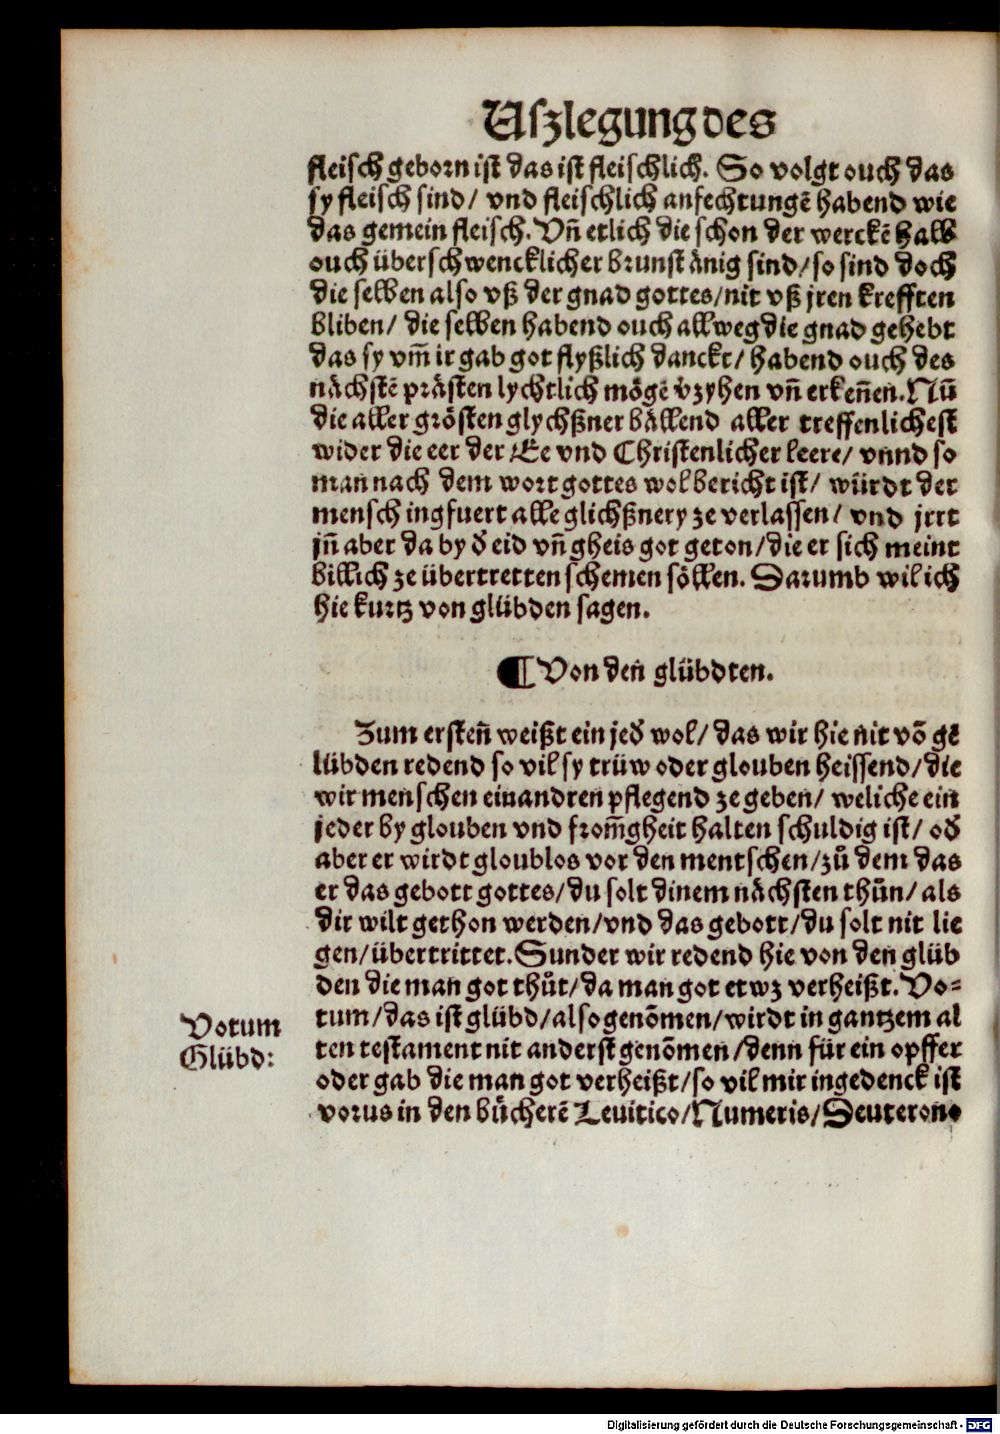 Uſzlegung des
fleiſch geborn iſt das iſt fleiſchlich. So volgt ouch das
ſy fleiſch ſind/ vnd fleiſchlich anfechtungē habend wie
das gemein fleiſch. Vñ etlich die ſchon der werckē halb
ouch überſchwencklicher brunſt änig ſind/ſo ſind doch
die ſelben alſo vß der gnad gottes/nit vß jren krefften
bliben/ die ſelben habend ouch allweg die gnad gehebt
das ſy vm̃ ir gab got flyßlich danckt/ habend ouch des
nächſtē präſten lychtlich mögē v̄zyhen vñ erkeñen. Nũ
die aller gröſten glychßner bällend aller treffenlicheſt
wider die eer der Ee vnd Chriſtenlicher leere/ vnnd ſo
man nach dem wort gottes wol bericht iſt/ würdt der
menſch ingfuert alle glichßnery ze verlaſſen/ vnd jrrt
jñ aber da by d̄ eid vñ gheis got geton/die er ſich meint
billich ze übertretten ſchemen ſöllen. Darumb wil ich
hie kurtz von glübden ſagen.
¶ Von den̄ glübdten.
Zum erſten̄ weißt ein jed̄ wol/ das wir hie nit võ ge
lübden redend ſo vil ſy trüw oder glouben heiſſend/die
wir menſchen einandren pflegend ze geben/ weliche ein
jeder by glouben vnd from̃gheit halten ſchuldig iſt/ od̄
aber er wirdt gloublos vor den mentſchen/zů dem das
er das gebott gottes/du ſolt dinem nächſten thůn/ als
dir wilt gethon werden/vnd das gebott/du ſolt nit lie
gen/übertrittet. Sunder wir redend hie von den glüb
den die man got thůt/da man got etwz verheißt. Vo⸗
tum/das iſt glübd/alſo genõmen/wirdt in gantzem al
ten teſtament nit anderſt genõmen/denn für ein opffer
oder gab die man got verheißt/ſo vil mir ingedenck iſt
vorus in den bůcherē Leuitico/Numeris/Deuterono
Votum
Glübd:
Digitalisierung gefördert durch die Deutsche Forschungsgemeinschaft - DFG